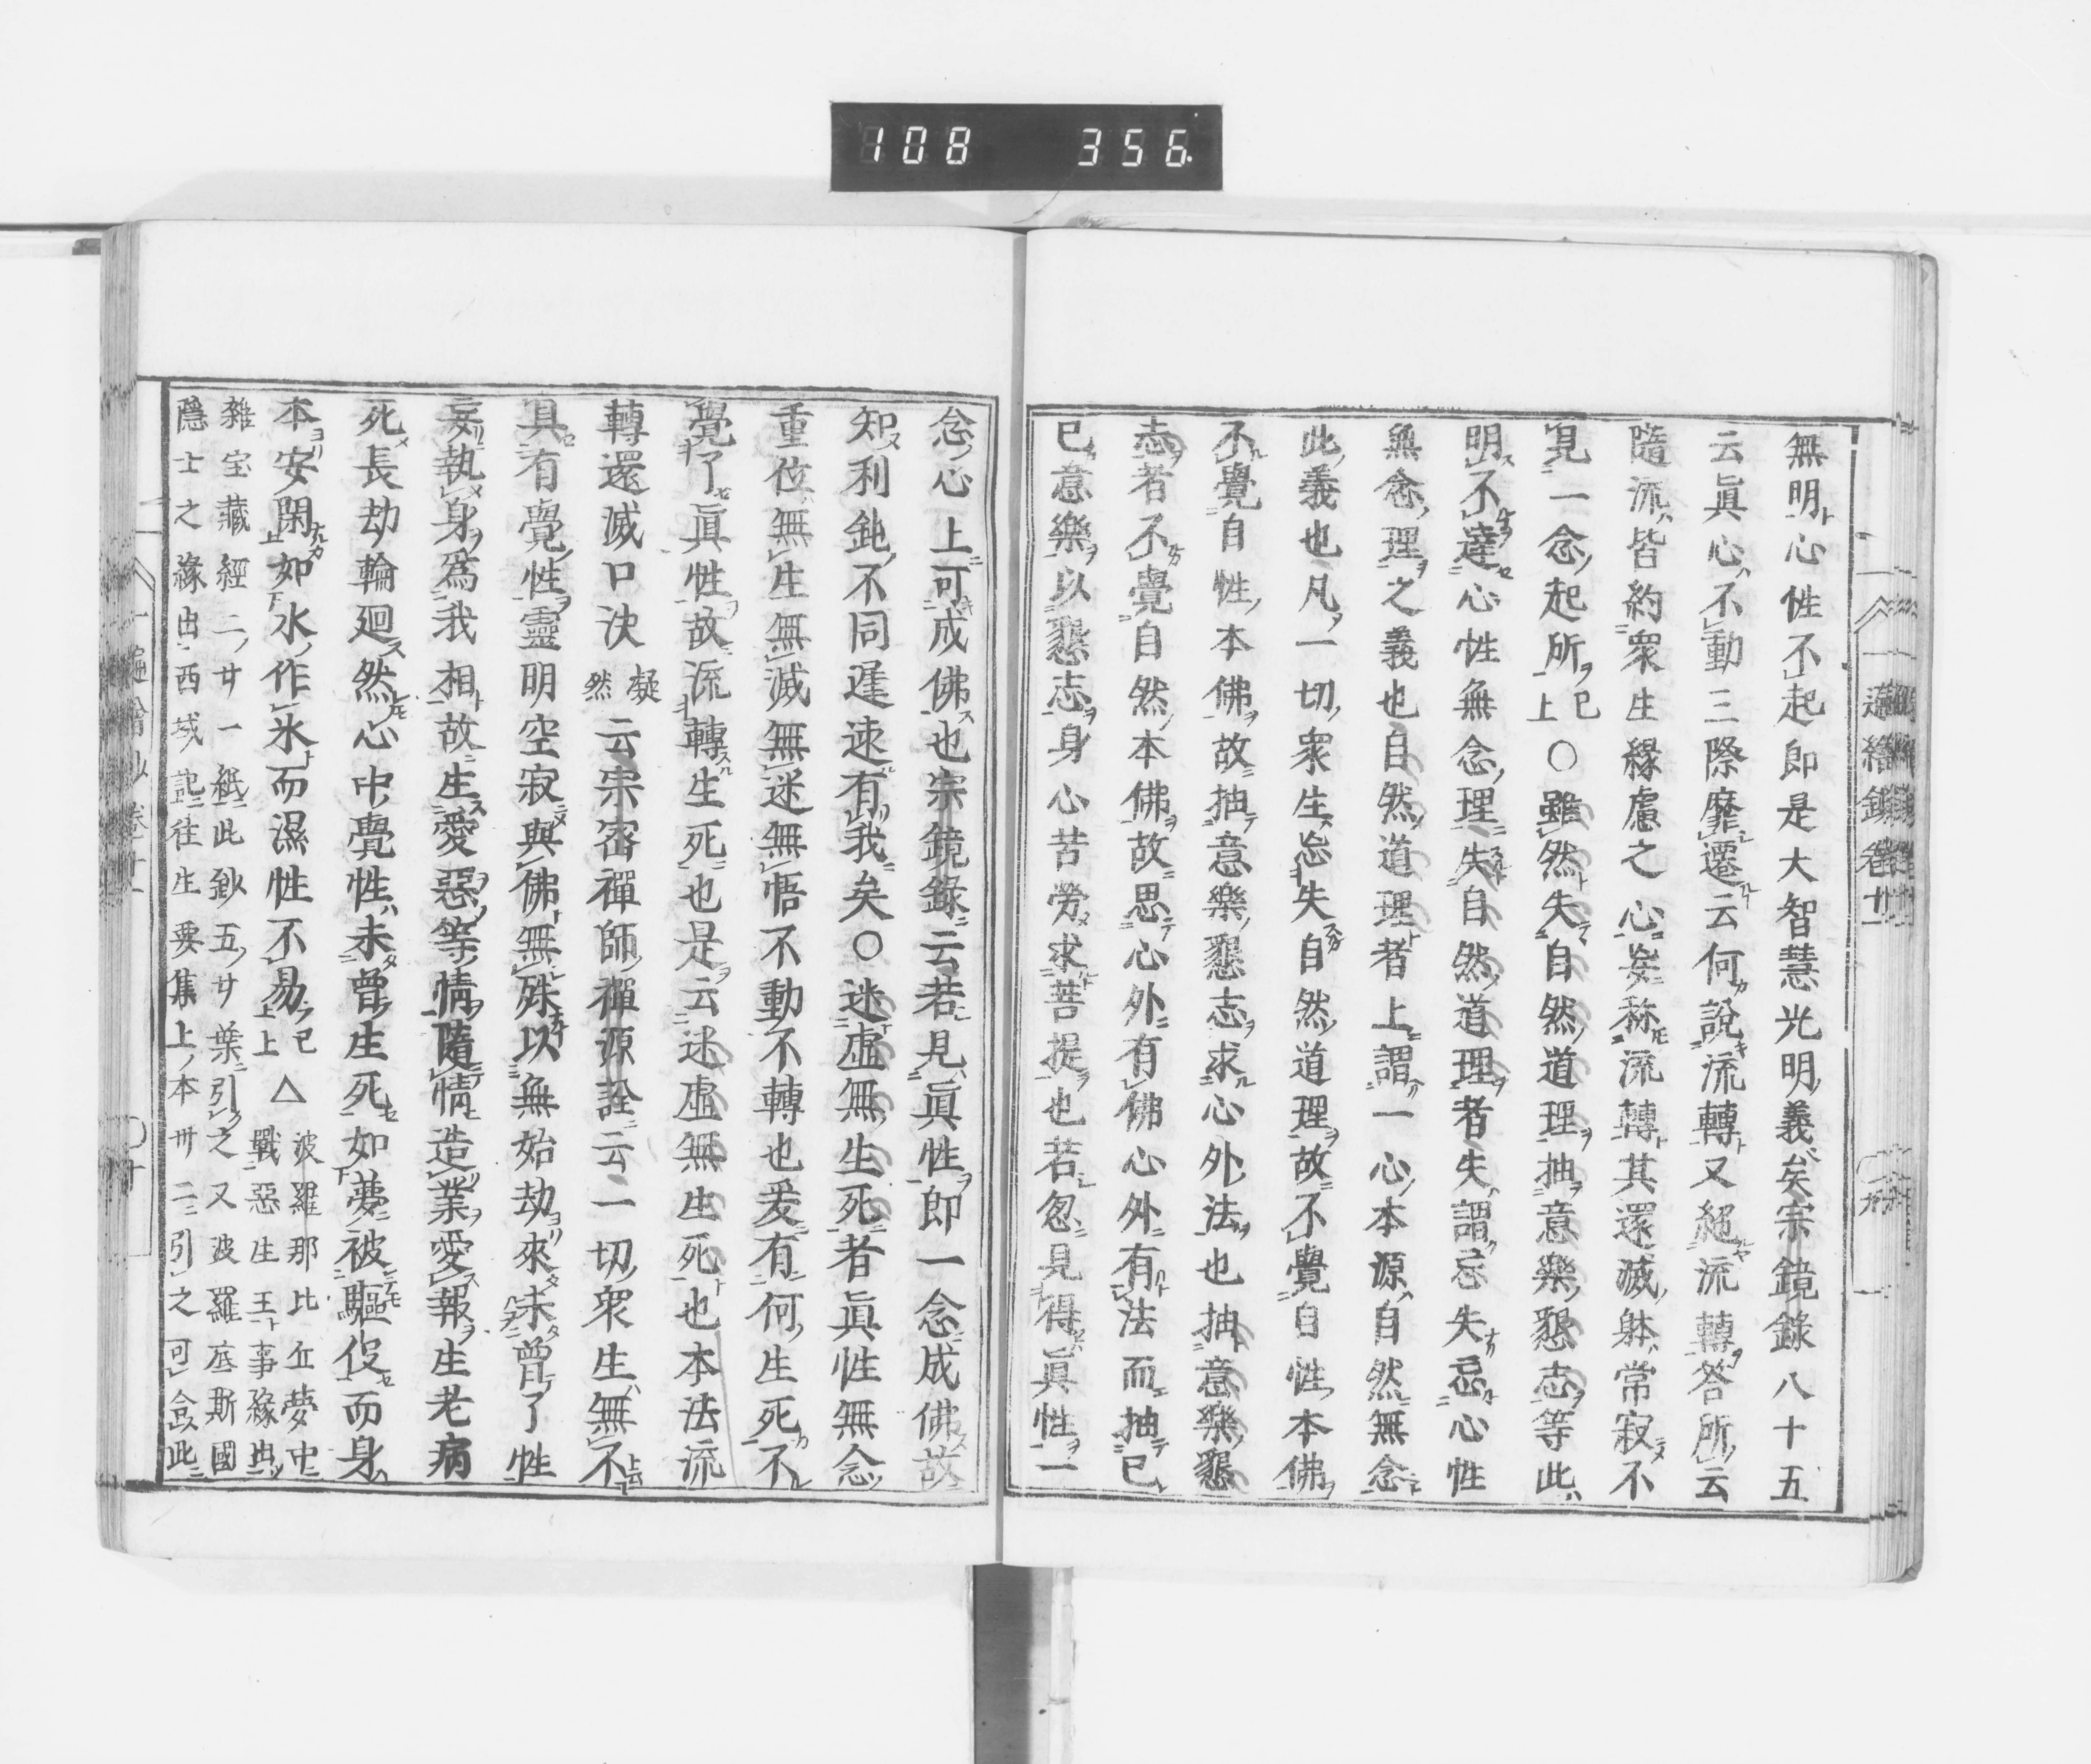 108 356
無明心性不起即是大智慧光明義矣宗鏡錄八十五
云眞心不動三際靡遷云何說流轉又絕流轉答所云
隨流皆約衆生緣慮之心妄称流轉其還滅躰常寂不
見一念起所已上○雖然失自然道理抽意樂懇志等此
明不達心性無念理失自然道理者失謂忘失忌心性
無念理之義也自然道理者上謂一心本源自然無念
此義也凡一切衆生忘失自然道理故不覺自性本佛
不覺自性本佛故抽意樂懇志求心外法也抽意樂懇
志者不覺自然本佛故思心外有佛心外有法而抽已
已意樂以懇志身心苦勞求菩提也若忽見得眞性一
念心上可成佛也宗鏡錄云若見眞性即一念成佛故
知利鈍不同遲速有我矣○迷虛無生死者眞性無念
重位無生無滅無迷無悟不動不轉也爰有何生死不
覺了眞性故流轉生死也是云迷虛無生死也本法流
轉還滅口決凝然云宗密禪師禪源詮云一切衆生無不
具有覺性靈明空寂與佛無殊以無始劫來未曾了性
妄執身爲我相故生愛惡等情隨情造業愛報生老病
死長劫輪廻然心中覺性未曾生死如夢被驅役而身
本安閑如水作氷而濕性不易已上△波羅那比丘夢中
戰惡生王事緣出
雜宝藏經二廿一紙此鈔五廿葉引之又波羅底斯國
隱士之緣出西域記往生要集上本卅二引之可會此